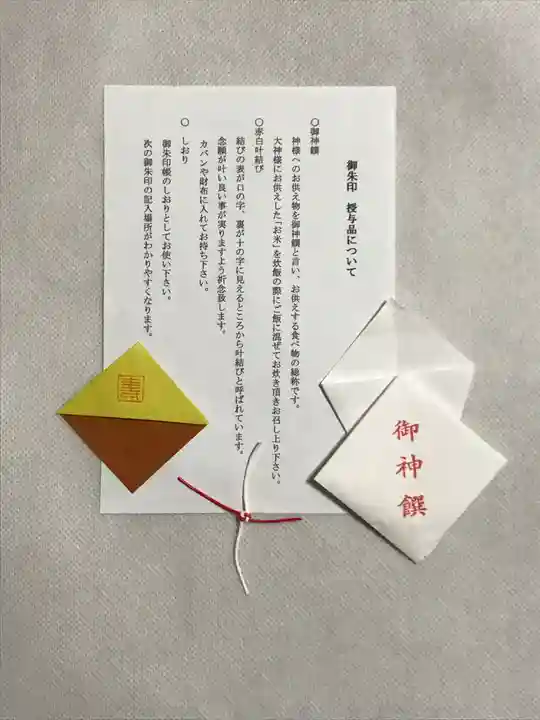 御朱印 授与品について
〇御神饌
神様へのお供え物を御神饌と言い、お供えする食べ物の総称です。
大神様にお供えした「お米」を炊飯の際にご飯に混ぜてお炊き頂きお召し上り下さい。
〇赤白叶結び
結びの表が口の字、裏が十の字に見えるところから叶結びと呼ばれています。
念願が叶い良い事が実りますよう祈念致します。
カバンや財布に入れてお持ち下さい。
〇しおり
御朱印帳のしおりとしてお使い下さい。
次の御朱印の記入場所がわかりやすくなります。
御神饌